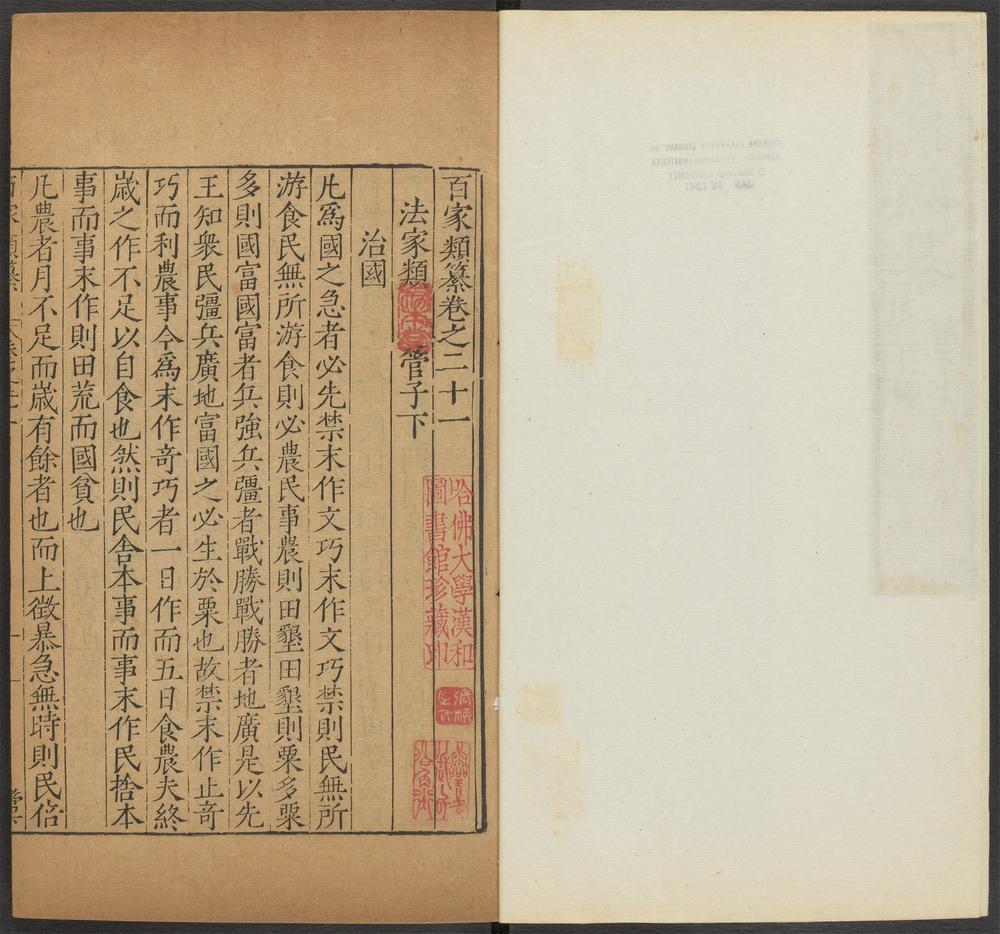 百家類纂卷之二十一
法家類 管子下
治國
凡爲國之急者必先禁末作文巧末作文巧禁則民無所
游食民無所游食則必農民事農則田墾田墾則粟多粟
多則國富國富者兵強兵彊者戰勝戰勝者地廣是以先
王知衆民彊兵廣地富國之必生於粟也故禁末作止奇
巧而利農事今爲末作奇巧者一日作而五日食農夫終
歲之作不足以自食也然則民舍本事而事末作民捨本
事而事末作則田荒而國貧也
凡農者月不足而歲有餘者也而上徵暴急無時則民倍
哈佛大學漢和
圖書館珍藏印